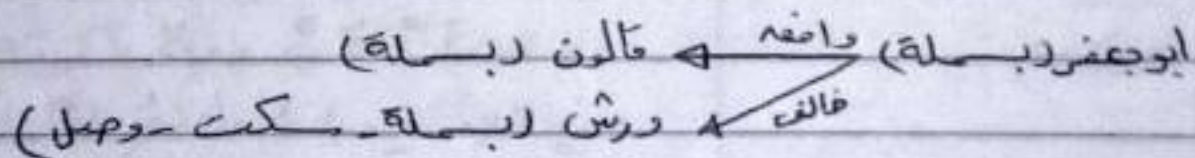 ابوجعفر (بسملة) وافقه ← قالون (بسملة)
خالف ← ورش (بسملة - سكت - وصل)